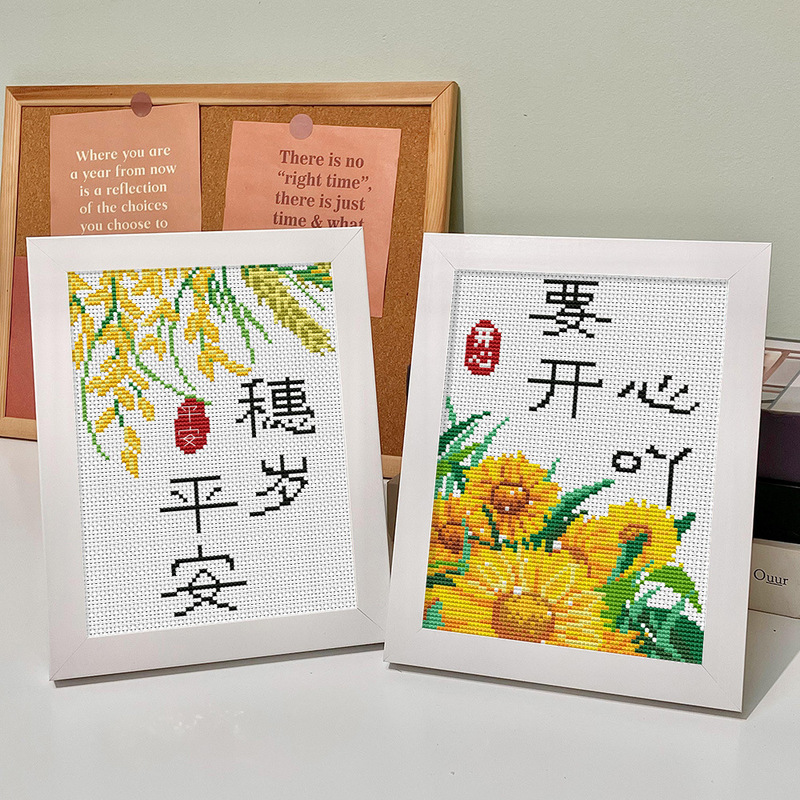 Where you are
a year from now
is a reflection
of the choices
you choose to
There is no
“right time”,
there is just
time & what
穗岁
平安
平安
要
开心
吖
开心
Ouur